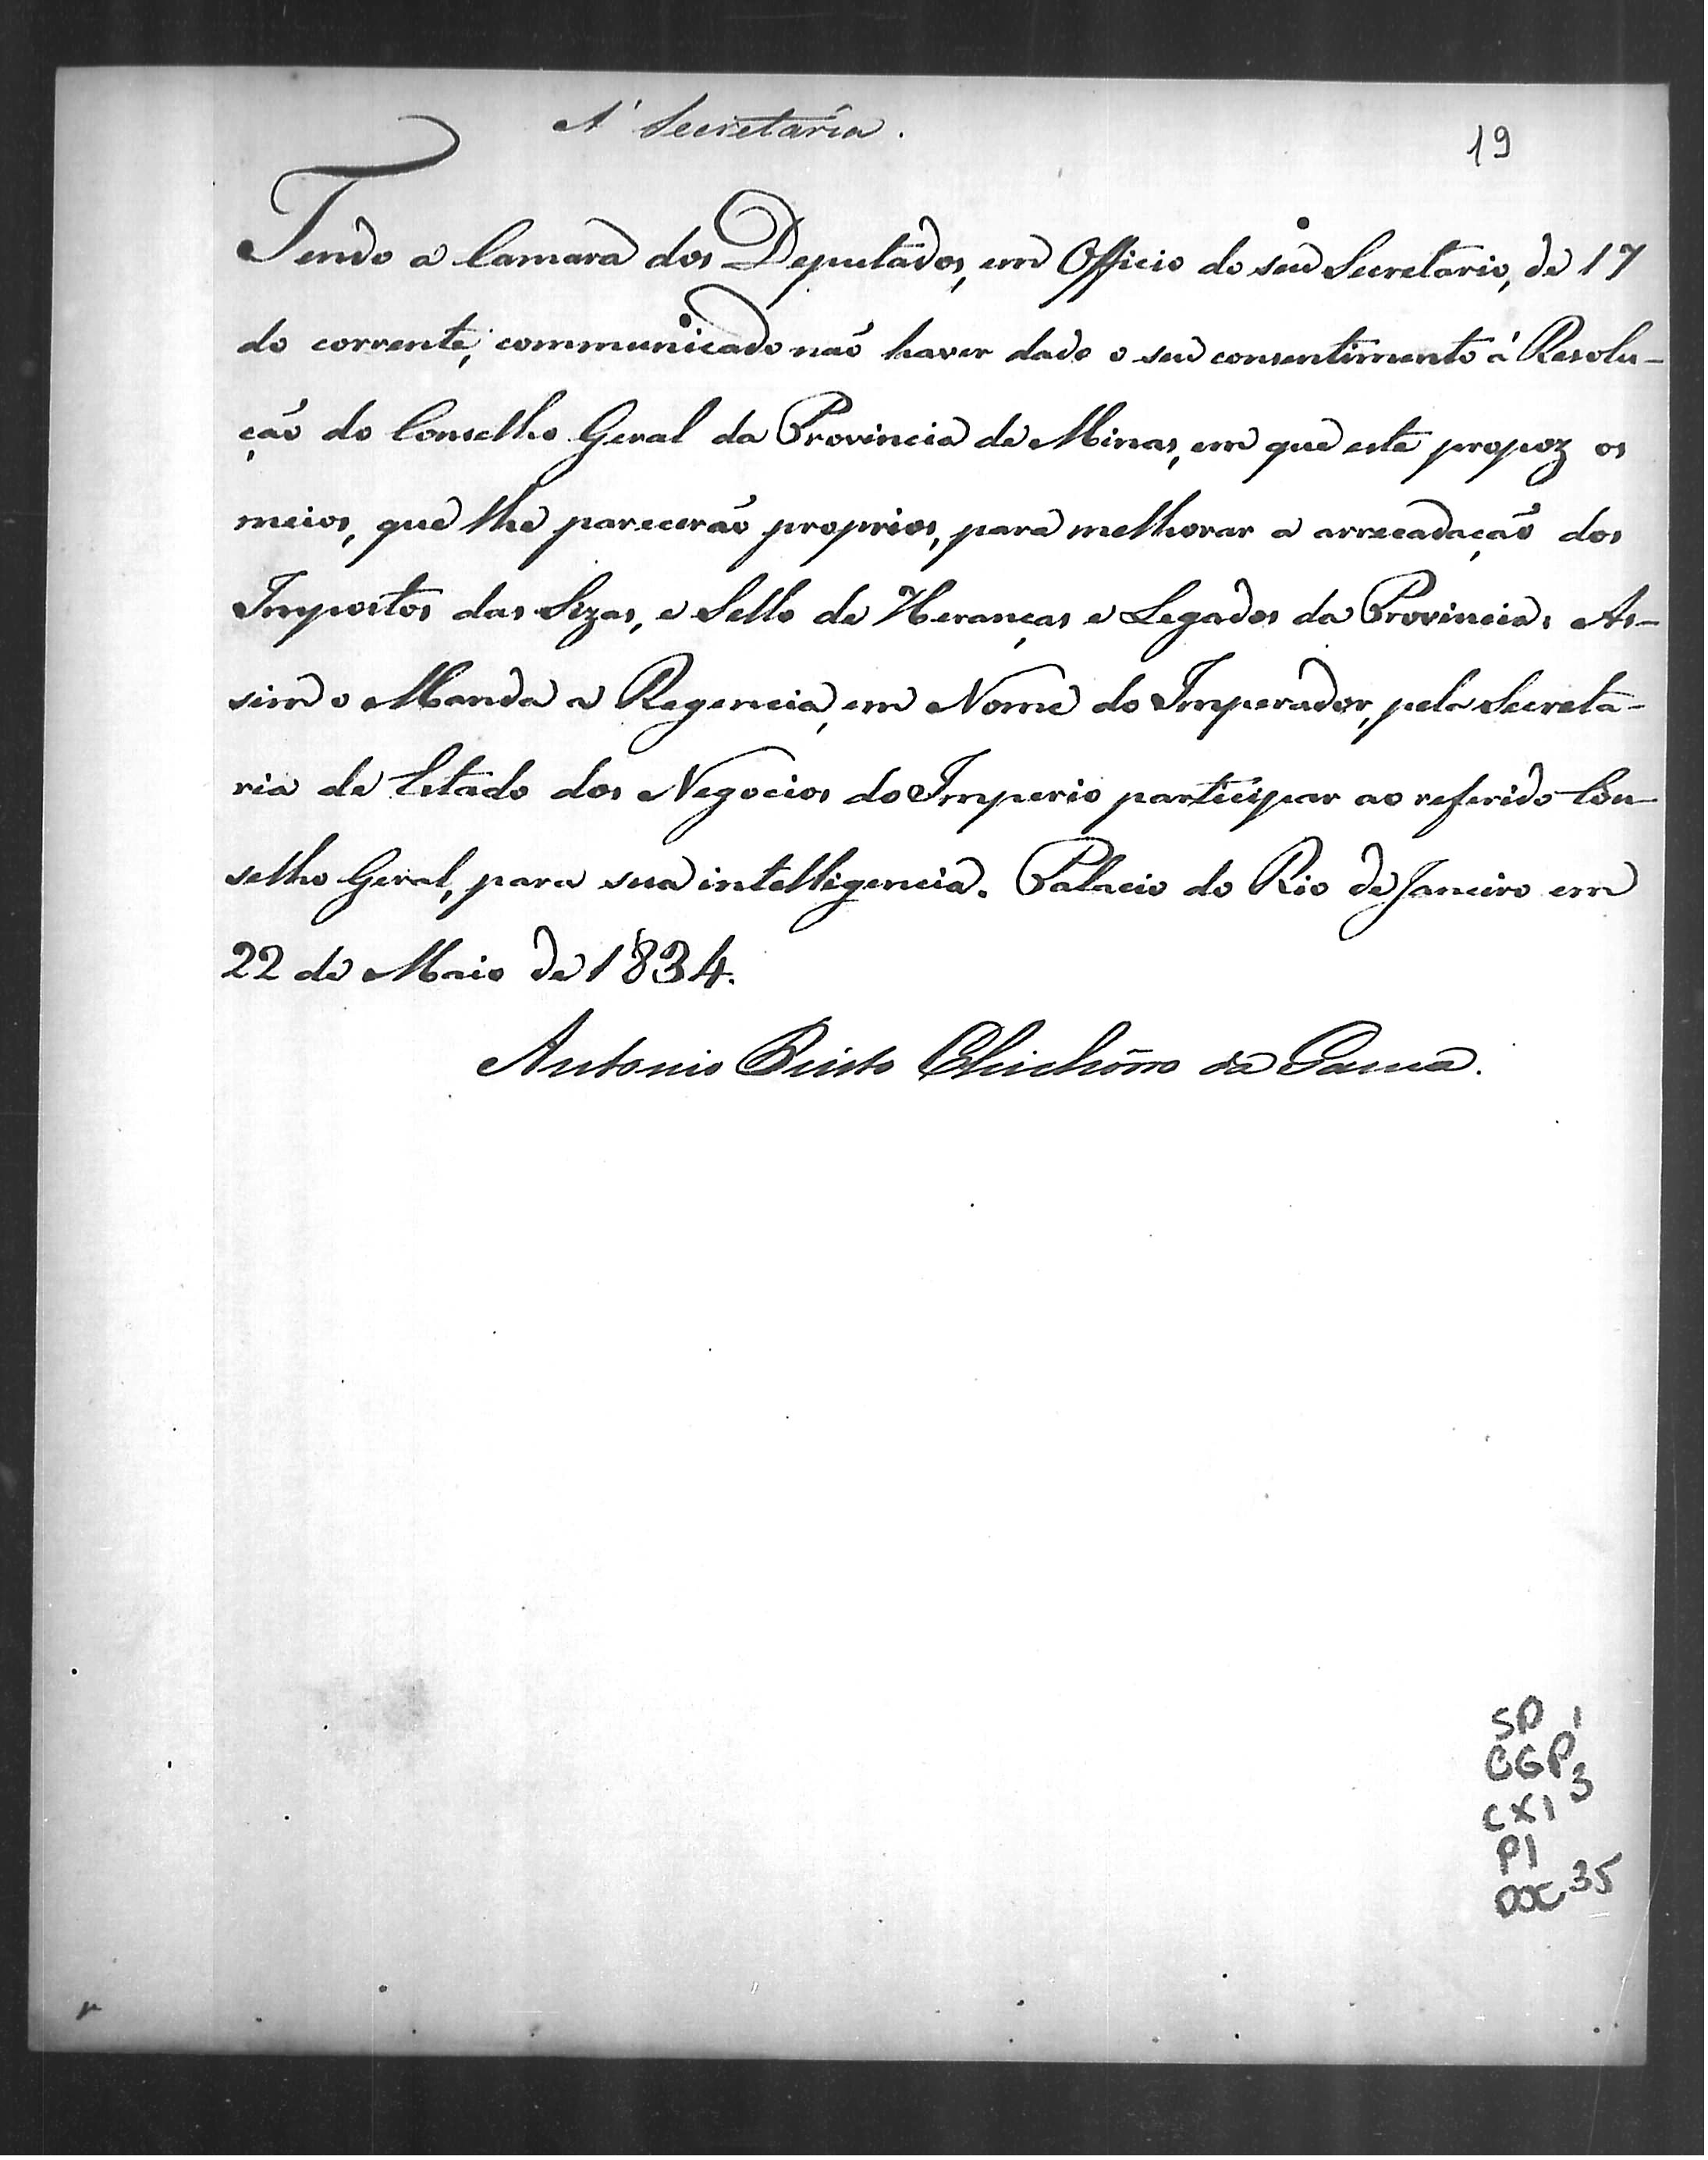 A' Secretaria.
19
Tendo a Camara dos Deputados, em Officio do seu Secretario, de 17
do corrente, communicado não haver dado o seu consentimento á Resolu-
ção do Conselho Geral da Provincia de Minas, em que este propoz os
meios, que lhe parecerão proprios, para melhorar a arrecadação dos
Impostos das Sizas, e Sello de Heranças e Legados da Provincia: As-
sim o Manda a Regencia, em Nome do Imperador, pela Secreta-
ria de Estado dos Negocios do Imperio participar ao referido Con-
selho Geral, para sua intelligencia. Palacio do Rio de Janeiro em
22 de Maio de 1834.
Antonio Pinto Chichôrro da Gama.
SP 1
CGP 3
CX1
P1
DOC 35